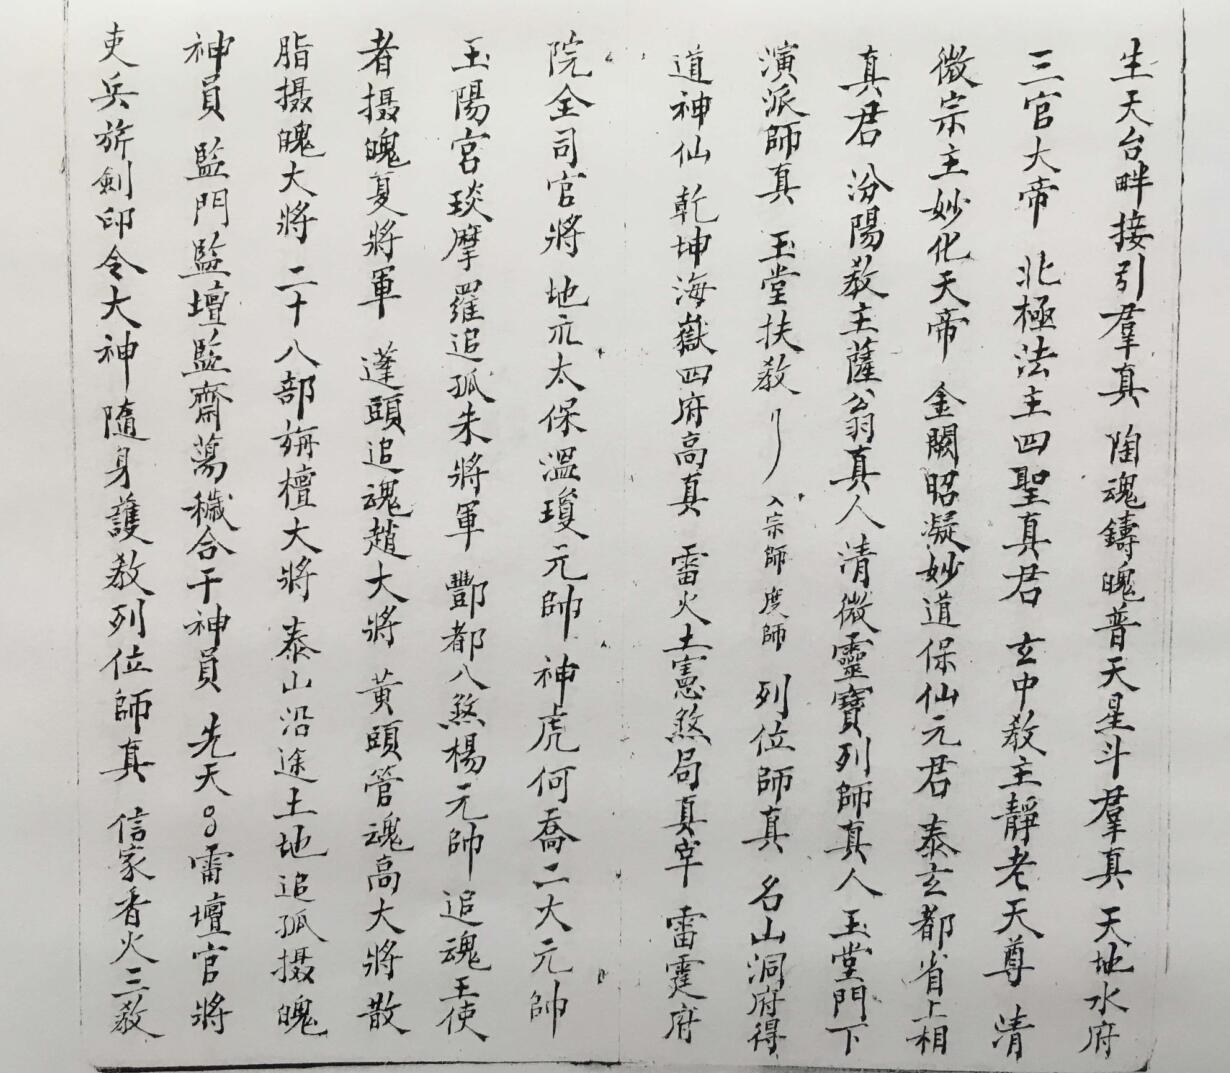 生天台畔接引羣真 陶魂鑄魄普天星斗羣真 天地水府
三官大帝 北極法主四聖真君 玄中教主靜老天尊 清
微宗主妙化天帝 金闕昭凝妙道保仙元君 泰玄都省上相
真君 汾陽教主薩翁真人清微靈寶列師真人 玉堂門下
演派師真 玉堂扶教 入宗師度師 列位師真 名山洞府得
道神仙 乾坤海嶽四府高真 雷火土憲煞局真宰 雷霆府
院全司官將 地祇太保溫瓊元帥 神虎何喬二大元帥
玉陽宮琰摩羅追孤朱將軍 酆都八煞楊元帥 追魂王使
者摄魄夏將軍 蓬頭追魂趙大將 黃頭管魂高大將 散
脂摄魄大將 二十八部旃檀大將 泰山沿途土地追孤摄魄
神員 監門監壇監齋蕩穢合干神員 先天 雷壇官將
吏兵符劍印令大神 隨身護教列位師真 信家香火三教